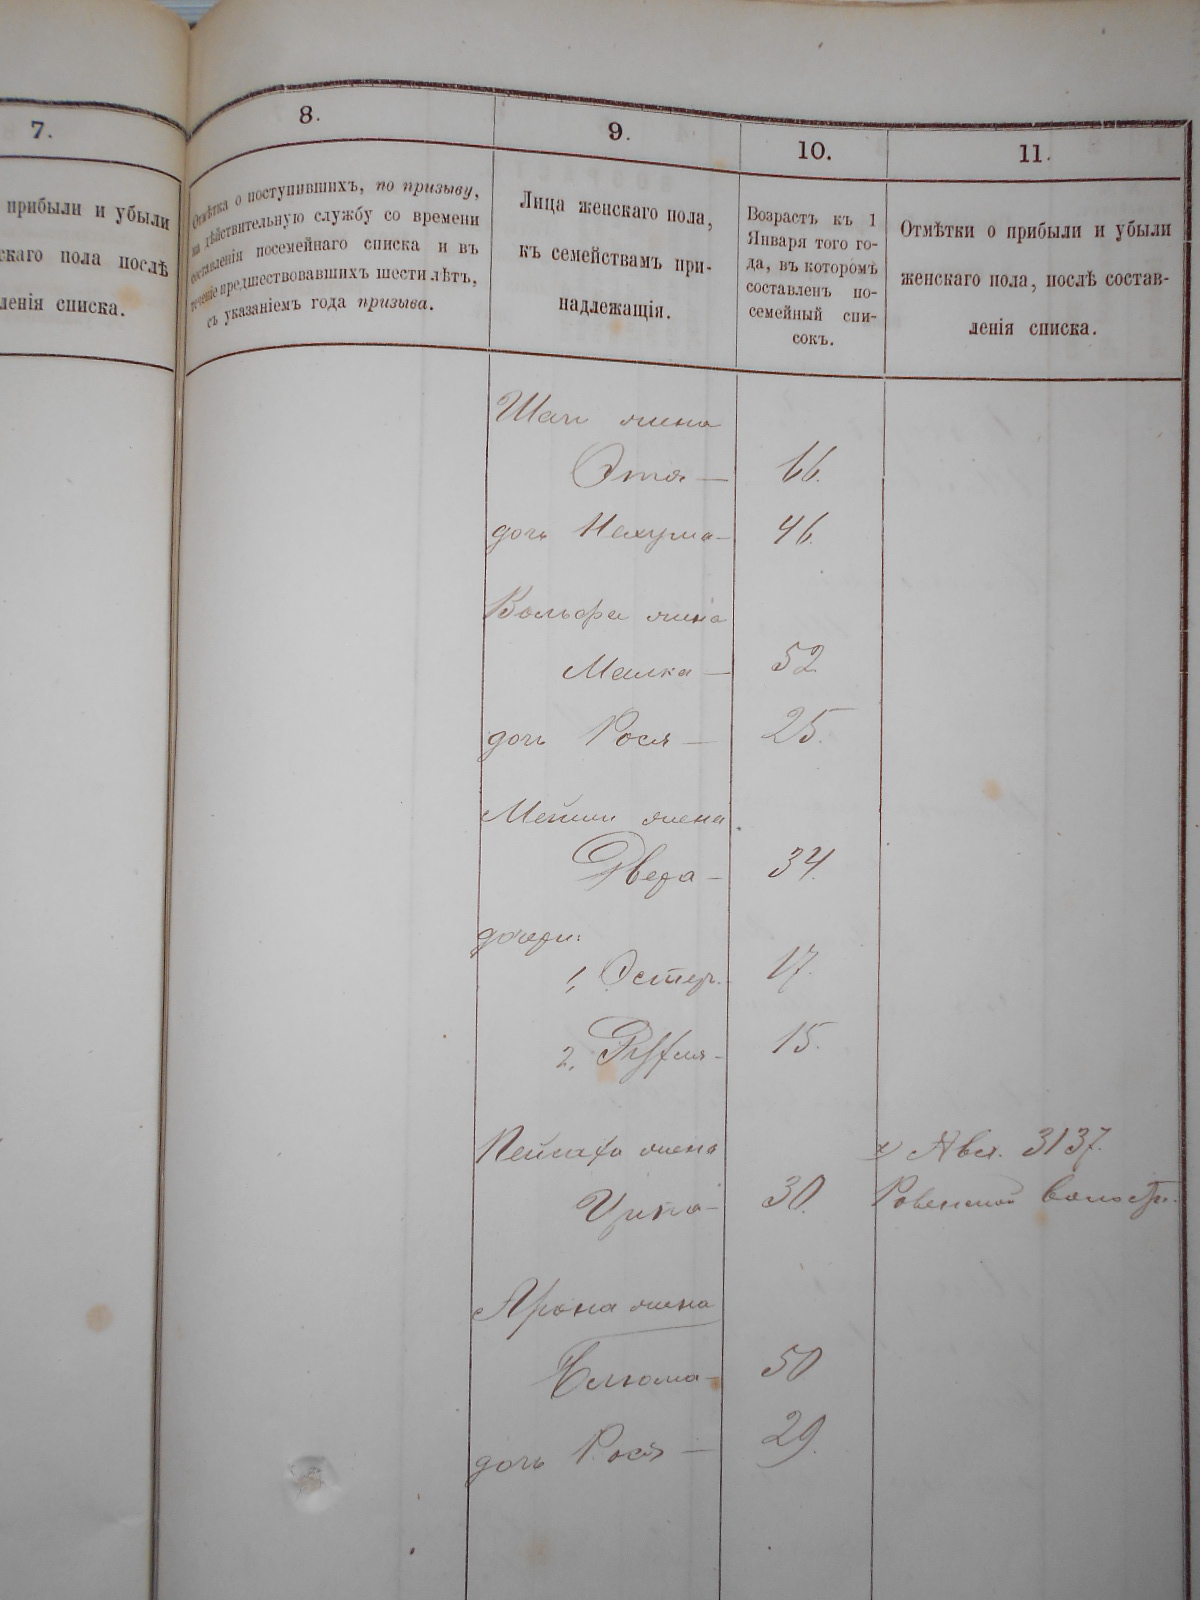 7.
прибыли и убыли
скаго пола послѣ
ленія списка.
8.
Отмѣтка о поступившихъ, по призыву,
на дѣйствительную службу со времени
составленія посемейнаго списка и въ
теченіе предшествовавшихъ шести лѣтъ,
съ указаніемъ года призыва.
9.
Лица женскаго пола,
къ семействамъ при-
надлежащія.
10.
Возрастъ къ 1
Января того го-
да, въ которомъ
составленъ по-
семейный спи-
сокъ.
11.
Отмѣтки о прибыли и убыли
женскаго пола, послѣ состав-
ленія списка.
жена
Этя — 66.
дочь Нехума — 46.
Вольфа жена
Малка — 52
дочь Рося — 25.
жена
Двера — 34.
дочери:
1, Эстер. 17.
2, 15.
жена
30.
х) 3137.
Ровенской волости.
Арона жена
Блюма — 50
дочь Рося — 29.